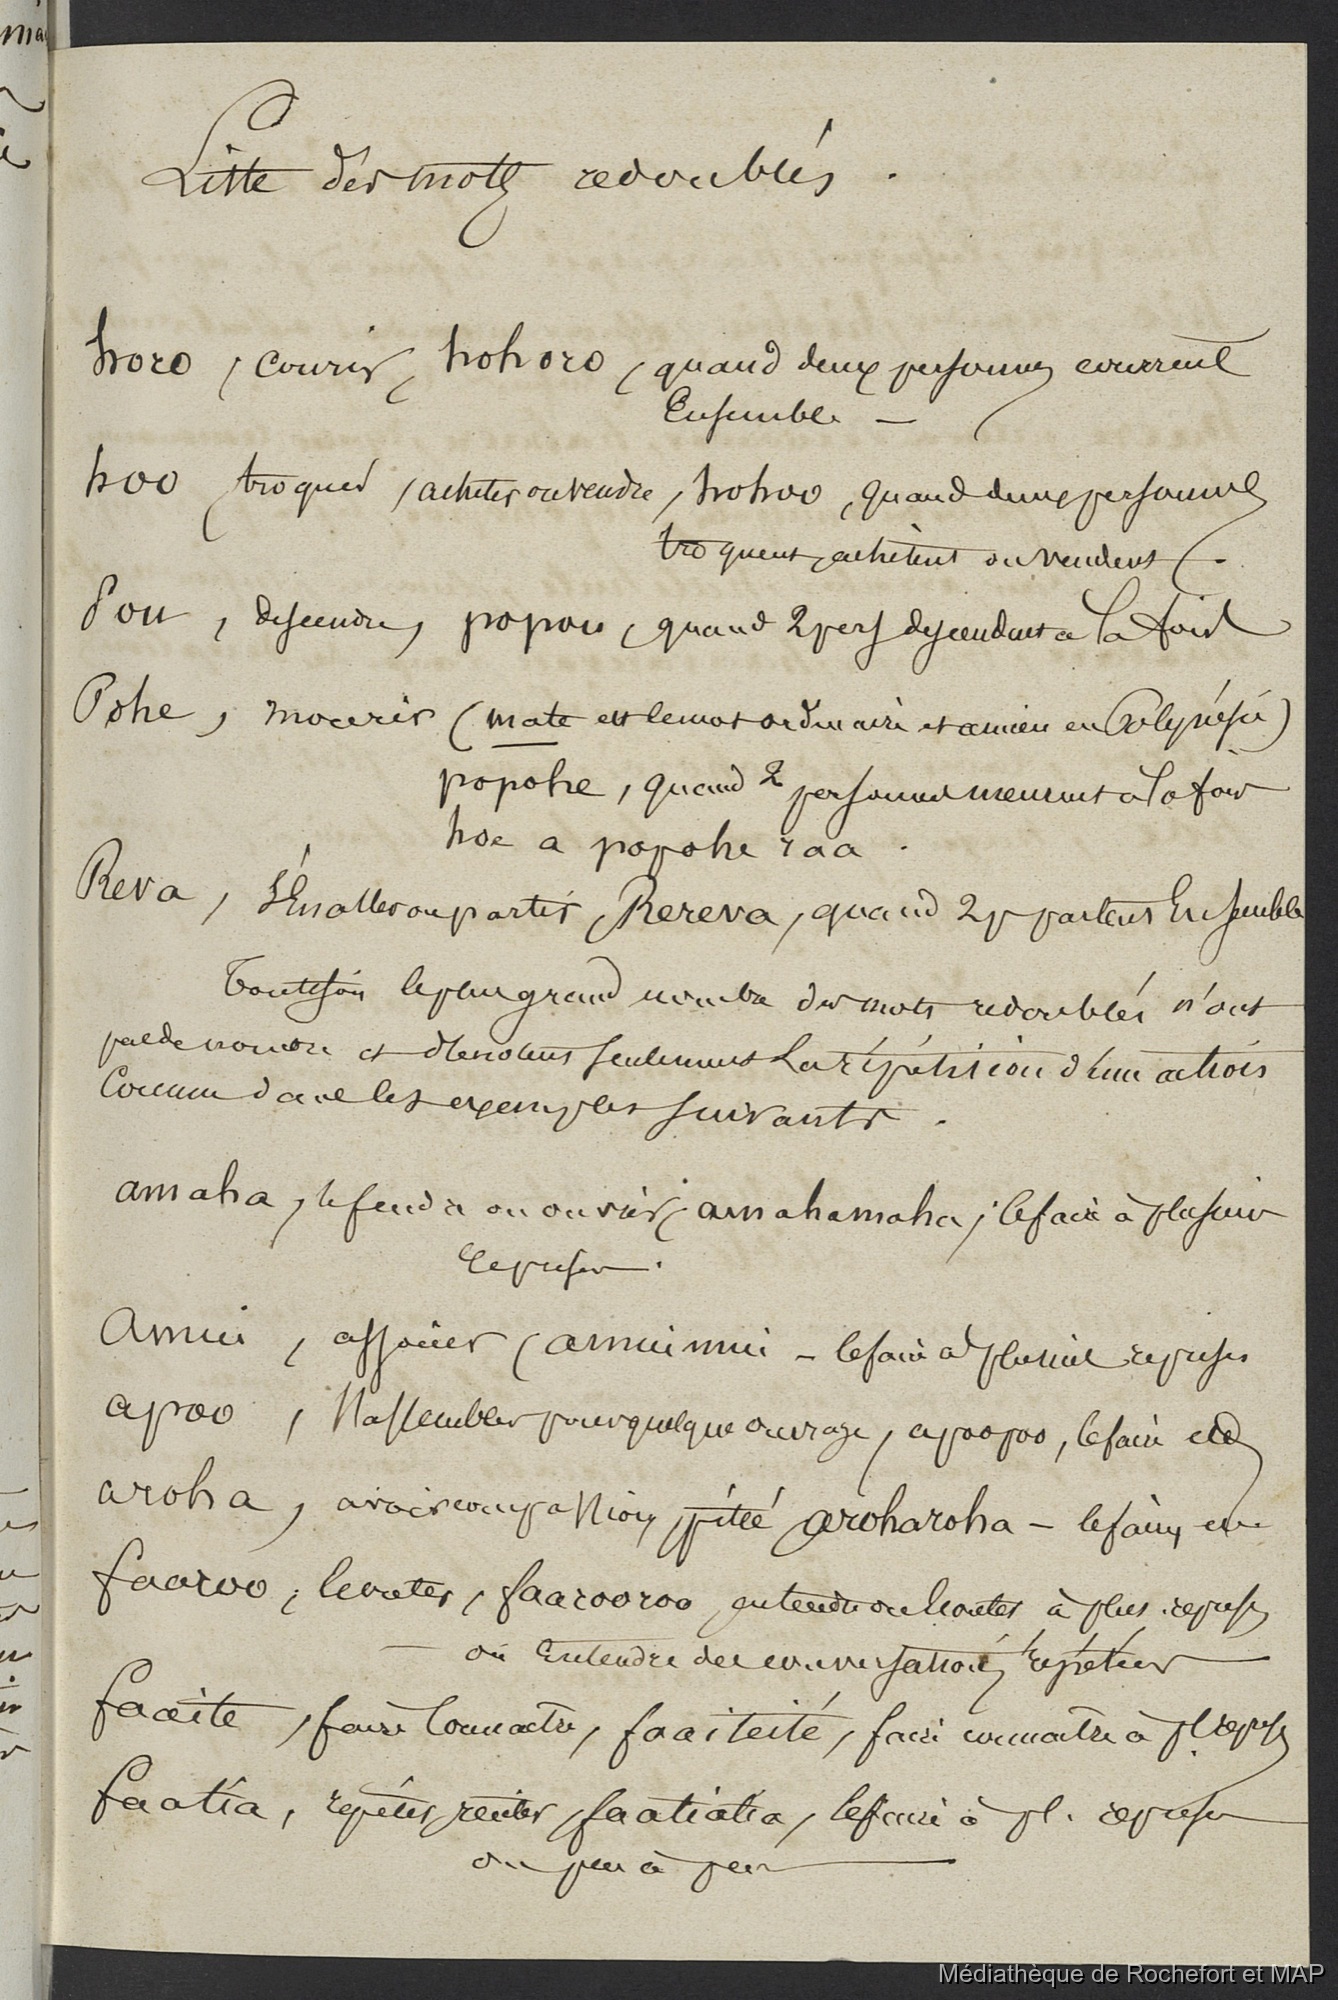 Liste des mots redoublés.
horo, courir, hohoro, quand deux personnes courrent
Ensemble —
hoo troquer, acheter ou vendre, hohoo, quand deux personnes
troquent, achètent ou vendent.
Pou, descendre, popou, quand 2 pers descendent à la fois
Pohe, mourir (mate est le mot ordinaire et ancien en Polynésie)
popohe, quand 2 personnes meurent à la fois
hoe a popohe raa.
Reva, s'En aller ou partir, Rereva, quand 2 p partent Ensemble
Toutefois le plus grand nombre des mots redoublés n'ont
pas de nombre et dénotent seulement la répétition d'une action
Comme dans les exemples suivants.
amaha, se fendre ou ouvrir, amahamaha, le faire à plusieurs
reprises.
Amui, associer, amuimui — le faire à plusieurs reprises
apoo, Rassembler pour quelque ouvrage, apoopoo, le faire
aroha, avoir compassion, pitié aroharoha — le faire
faaroo, écouter, faarooroo entendre ou écouter à plus. reprises
— ou Entendre des conversations répétées —
faaite, faire Connaitre, faaiteité, faire connaitre à pl. reprises
faatia, répéter, réciter, faatiatia, le faire à pl. reprises
ou peu à peu —
Médiathèque de Rochefort et MAP